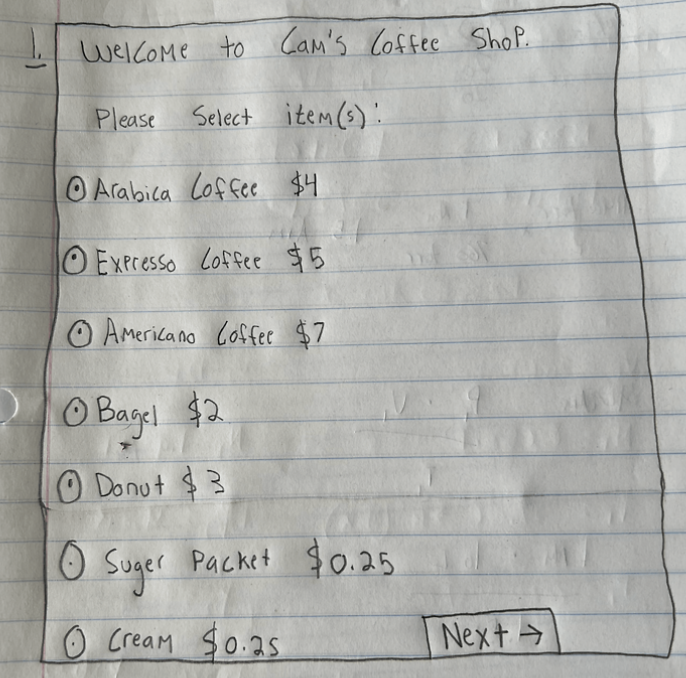 1.
Welcome to Cam's Coffee Shop.
Please Select item(s):
Arabica Coffee $4
Expresso Coffee $5
Americano Coffee $7
Bagel $2
Donut $3
Suger Packet $0.25
Cream $0.25
Next →